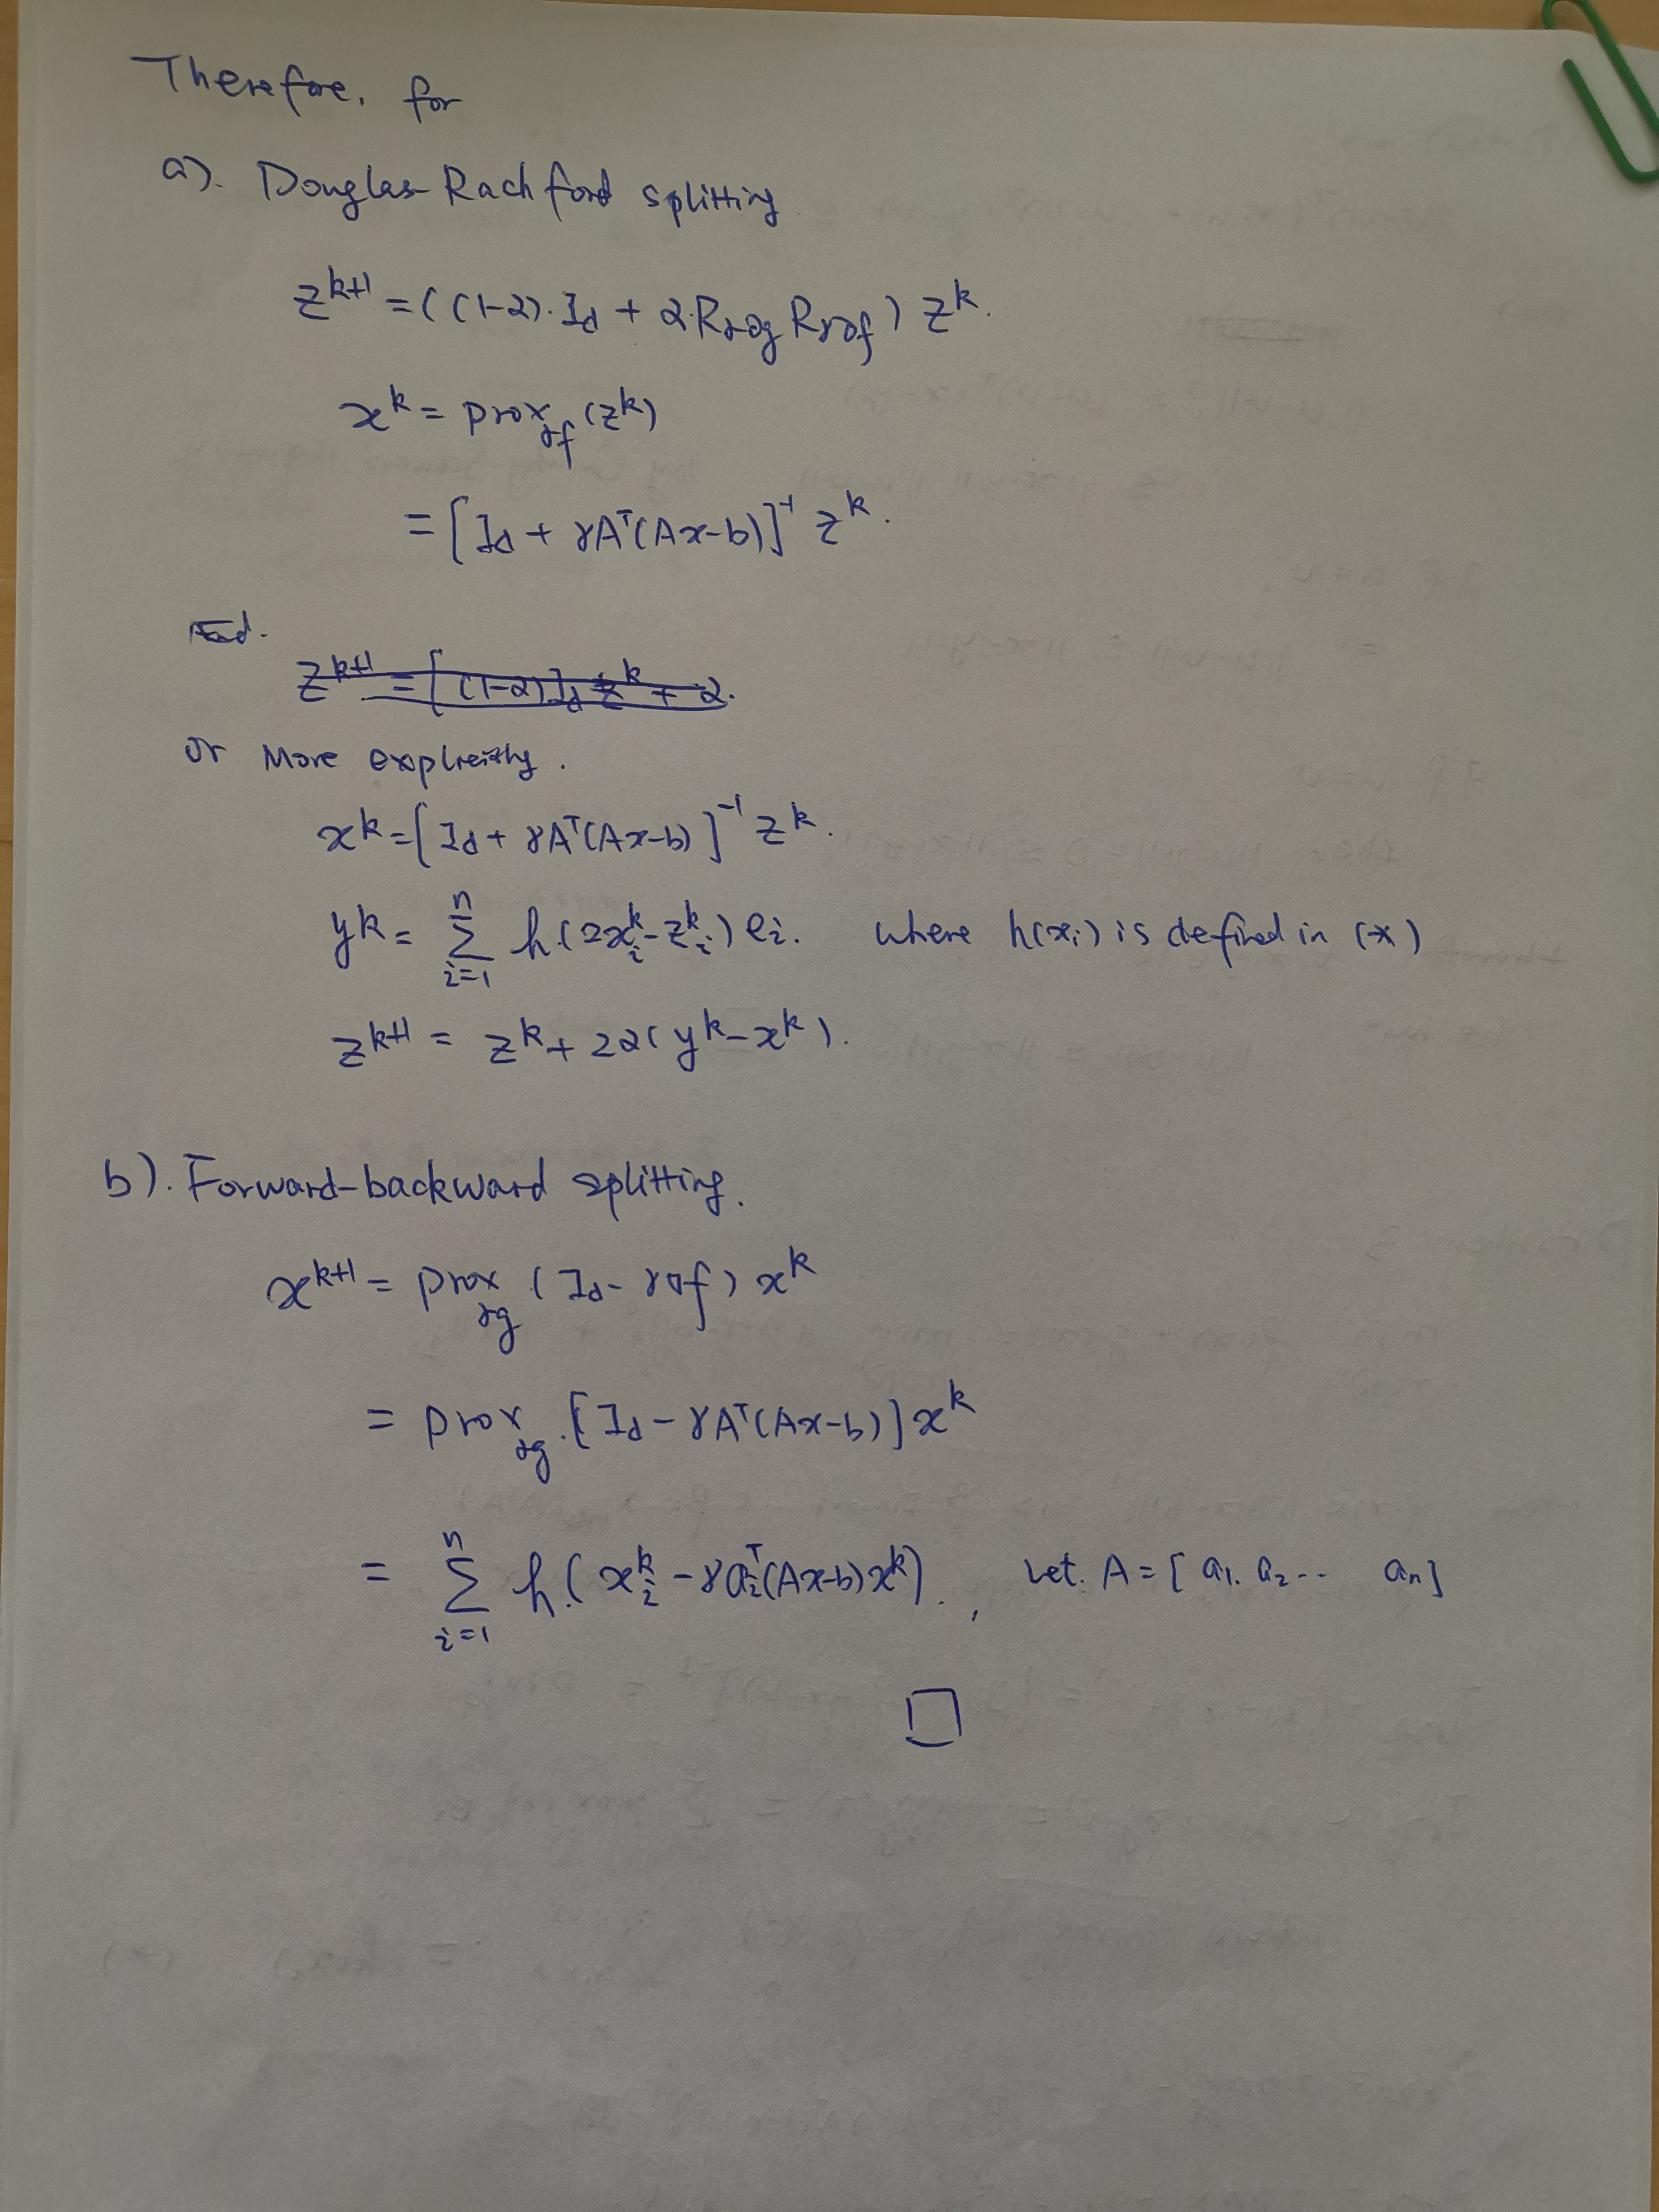 Therefore, for
a). Douglas-Rachford splitting
z^{k+1} = ((1-α)·Id + α·R_{γ∂g} R_{γ∂f}) z^k.
x^k = prox_{γf}(z^k)
= [Id + γA^T(Ax-b)]^{-1} z^k.
or More explicitly.
x^k = [Id + γA^T(Ax-b)]^{-1} z^k.
y^k = Σ_{i=1}^{n} h(2x_i^k - z_i^k) e_i. where h(x_i) is defined in (*)
z^{k+1} = z^k + 2α(y^k - x^k).
b). Forward-backward splitting.
x^{k+1} = prox_{γg} (Id - γ∇f) x^k
= prox_{γg}·[Id - γA^T(Ax-b)] x^k
= Σ_{i=1}^{n} h(x_i^k - γa_i^T(Ax-b)x^k)., Let. A = [a_1. a_2 ·· a_n]
□